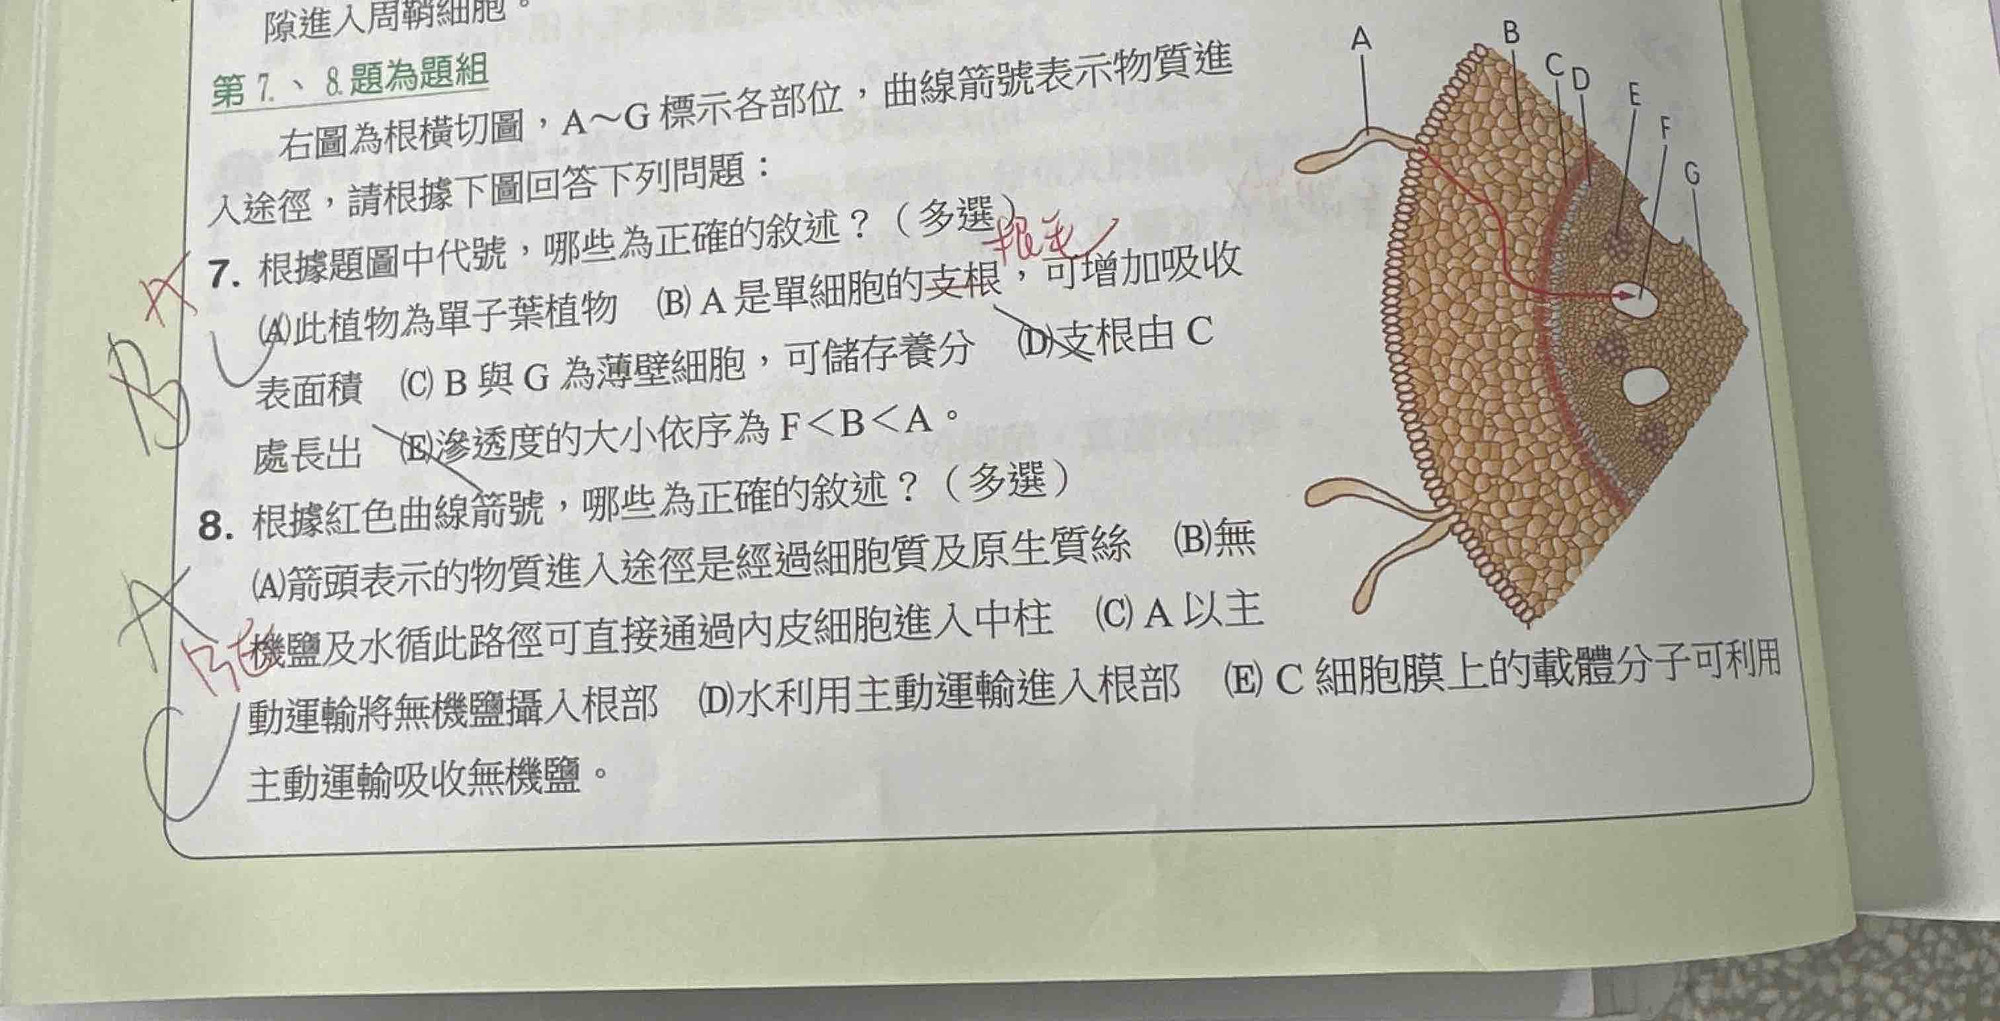 隙進入周鞘細胞。
第 7.、8. 題為題組
右圖為根橫切圖，A～G 標示各部位，曲線箭號表示物質進
入途徑，請根據下圖回答下列問題：
7. 根據題圖中代號，哪些為正確的敘述？（多選）
根毛
(A)此植物為單子葉植物　(B) A 是單細胞的支根，可增加吸收
表面積　(C) B 與 G 為薄壁細胞，可儲存養分　(D)支根由 C
處長出　(E)滲透度的大小依序為 F＜B＜A。
8. 根據紅色曲線箭號，哪些為正確的敘述？（多選）
(A)箭頭表示的物質進入途徑是經過細胞質及原生質絲　(B)無
機鹽及水循此路徑可直接通過內皮細胞進入中柱　(C) A 以主
動運輸將無機鹽攝入根部　(D)水利用主動運輸進入根部　(E) C 細胞膜上的載體分子可利用
主動運輸吸收無機鹽。
A
B
C
D
E
F
G
B
A
C